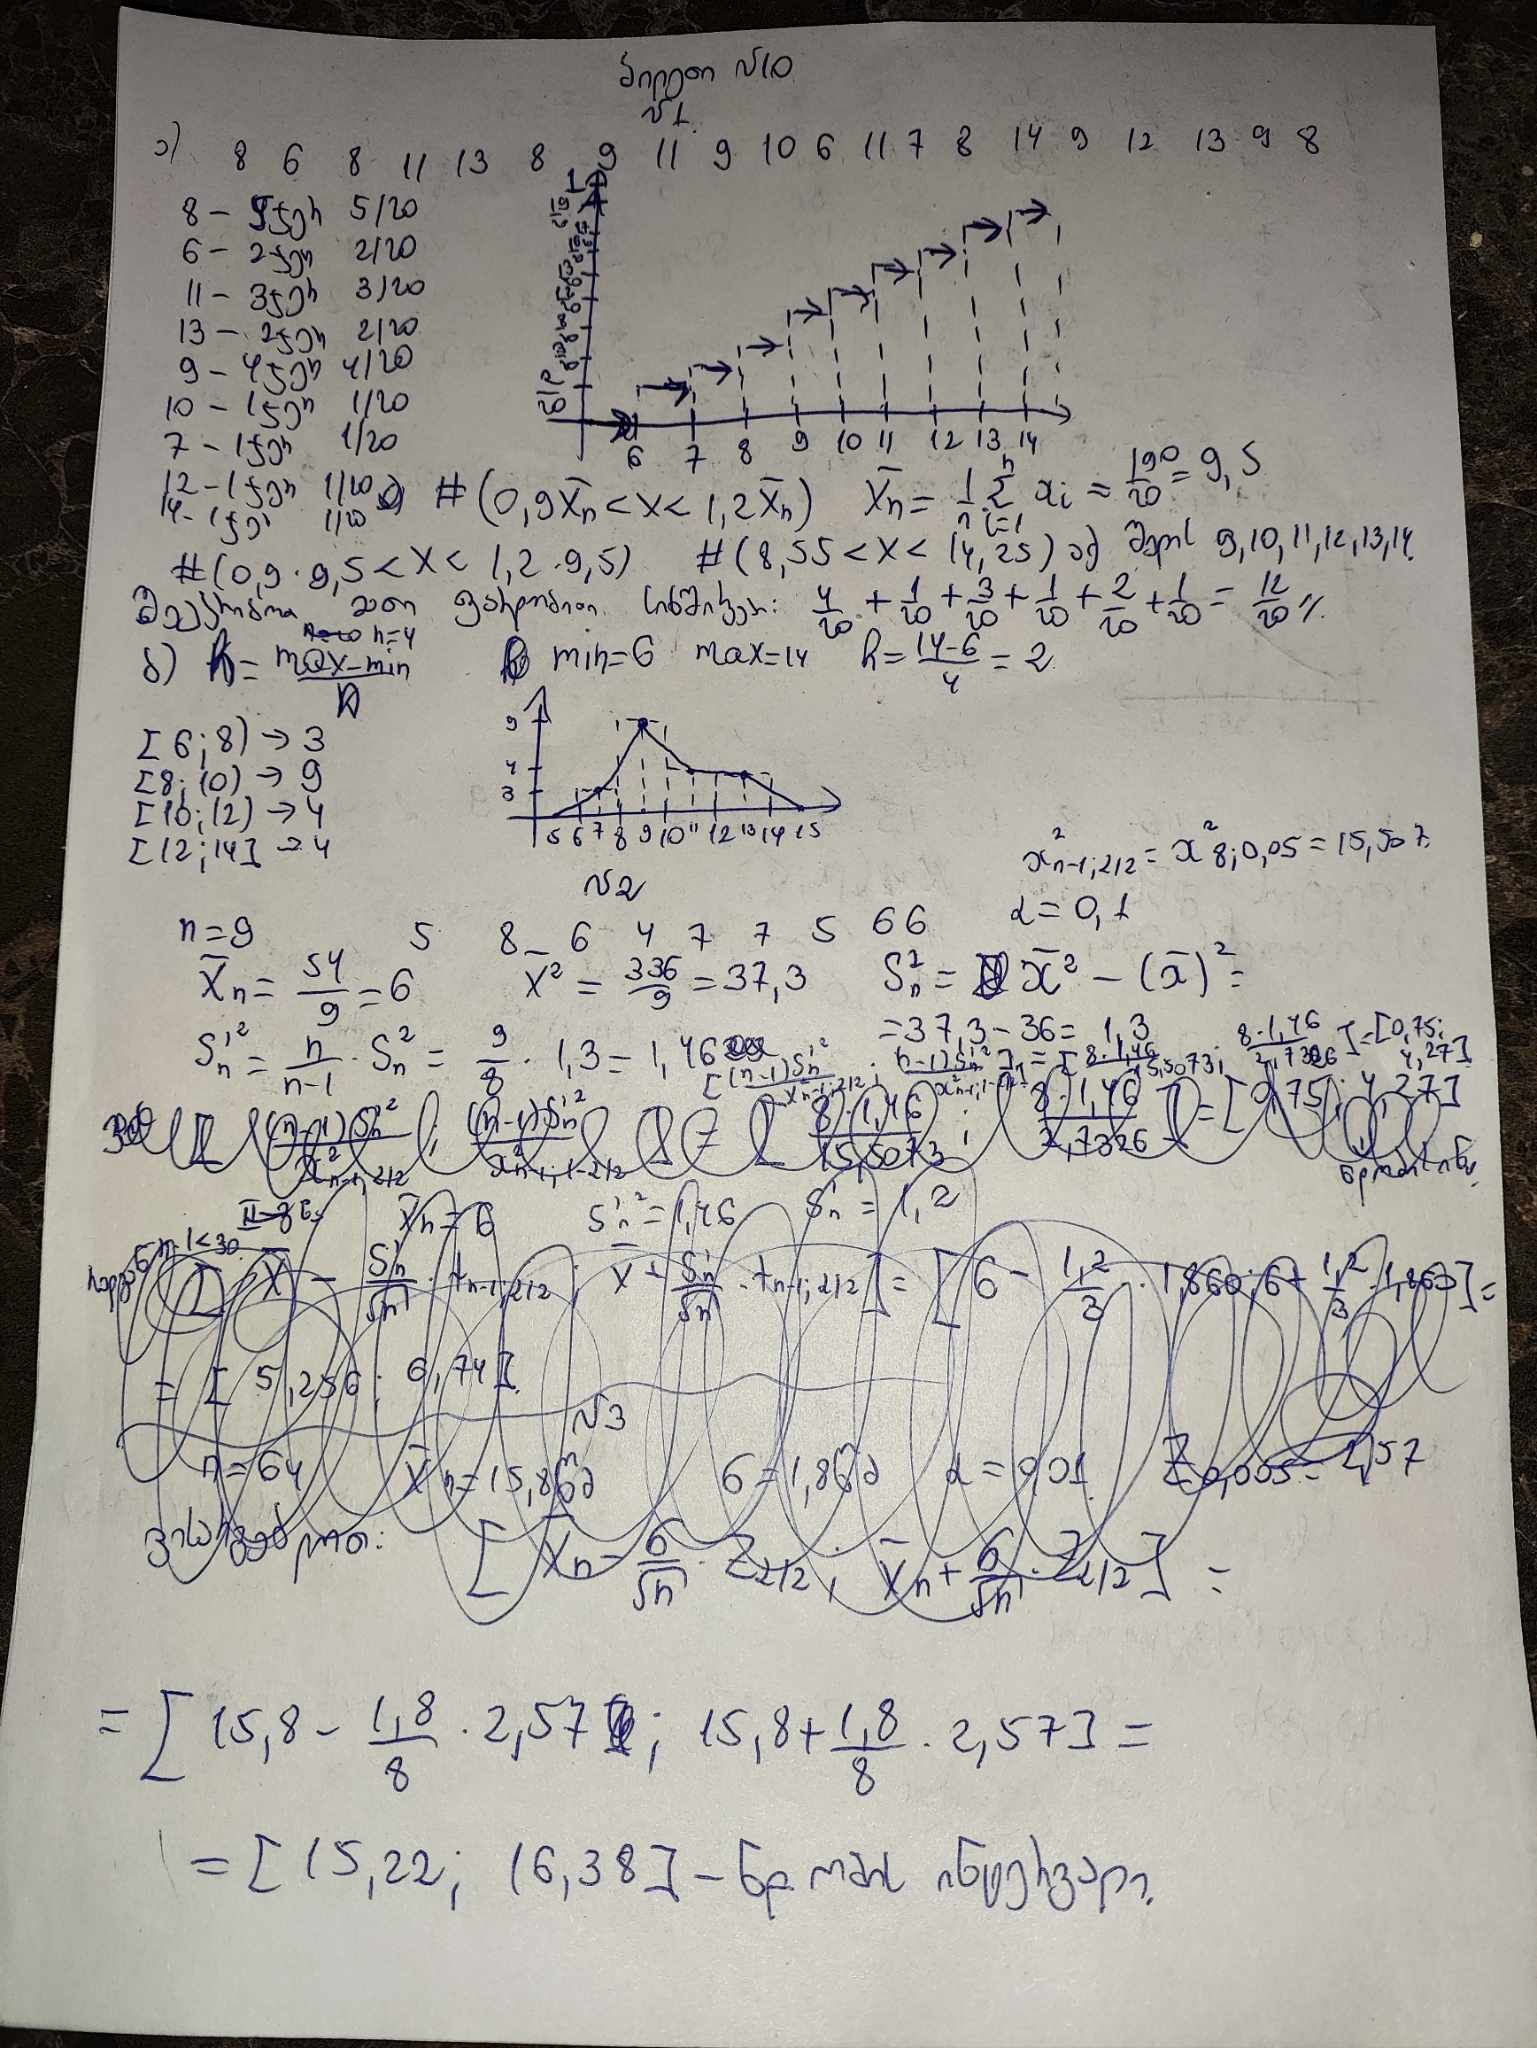 ბილეთი №10
№1.
ა) 8 6 8 11 13 8 9 11 9 10 6 11 7 8 14 9 12 13 9 8
8 – 5ჯერ 5/20
6 – 2ჯერ 2/20
11 – 3ჯერ 3/20
13 – 2ჯერ 2/20
9 – 4ჯერ 4/20
10 – 1ჯერ 1/20
7 – 1ჯერ 1/20
12 – 1ჯერ 1/20
14 – 1ჯერ 1/20
1
2/20
6 7 8 9 10 11 12 13 14
#(0,9X̄n < x < 1,2X̄n) X̄n = 1/n Σ(i=1..n) xi = 190/20 = 9,5
#(0,9·9,5 < x < 1,2·9,5) #(8,55 < x < 14,25) აქ შედის 9,10,11,12,13,14
შევკრიბოთ მათი ფარდობითი სიხშირეები: 4/20 + 1/20 + 3/20 + 1/20 + 2/20 + 1/20 = 12/20
n=4
ბ) h = (max–min)/n min=6 max=14 h = (14-6)/4 = 2
[6;8) → 3
[8;10) → 9
[10;12) → 4
[12;14] → 4
9
4
3
5 6 7 8 9 10 11 12 13 14 15
x²n-1;α/2 = x²8;0,05 = 15,507
№2
α = 0,1
n=9 5 8 6 4 7 7 5 6 6
X̄n = 54/9 = 6 X̄² = 336/9 = 37,3 S²n = x̄² – (x̄)² =
= 37,3 – 36 = 1,3
S'n² = n/(n-1) · S²n = 9/8 · 1,3 = 1,46
[(n-1)S'n²/x²n-1;α/2 ; (n-1)S'n²/x²n-1;1-α/2] = [8·1,46/15,5073; 8·1,46/2,7326] = [0,75; 4,27]
[(n-1)S'n²/x²n-1;α/2 ; (n-1)S'n²/x²n-1;1-α/2] = [8·1,46/15,5073 ; 8·1,46/2,7326] = [0,75; 4,27]
X̄n = 6 S'n² = 1,46 S'n = 1,2
n-1<30
[X̄ – S'n/√n · tn-1;α/2 ; X̄ + S'n/√n · tn-1;α/2] = [6 – 1,2/3 · 1,860; 6 + 1,2/3 · 1,860] =
= [5,256; 6,74]
№3
n=64 X̄n = 15,8 σ = 1,8 α = 0,01 Z0,005 = 2,57
[X̄n – σ/√n · Zα/2 ; X̄n + σ/√n · Zα/2] =
= [15,8 – 1,8/8 · 2,57 ; 15,8 + 1,8/8 · 2,57] =
= [15,22; 16,38] – ნდობის ინტერვალი.